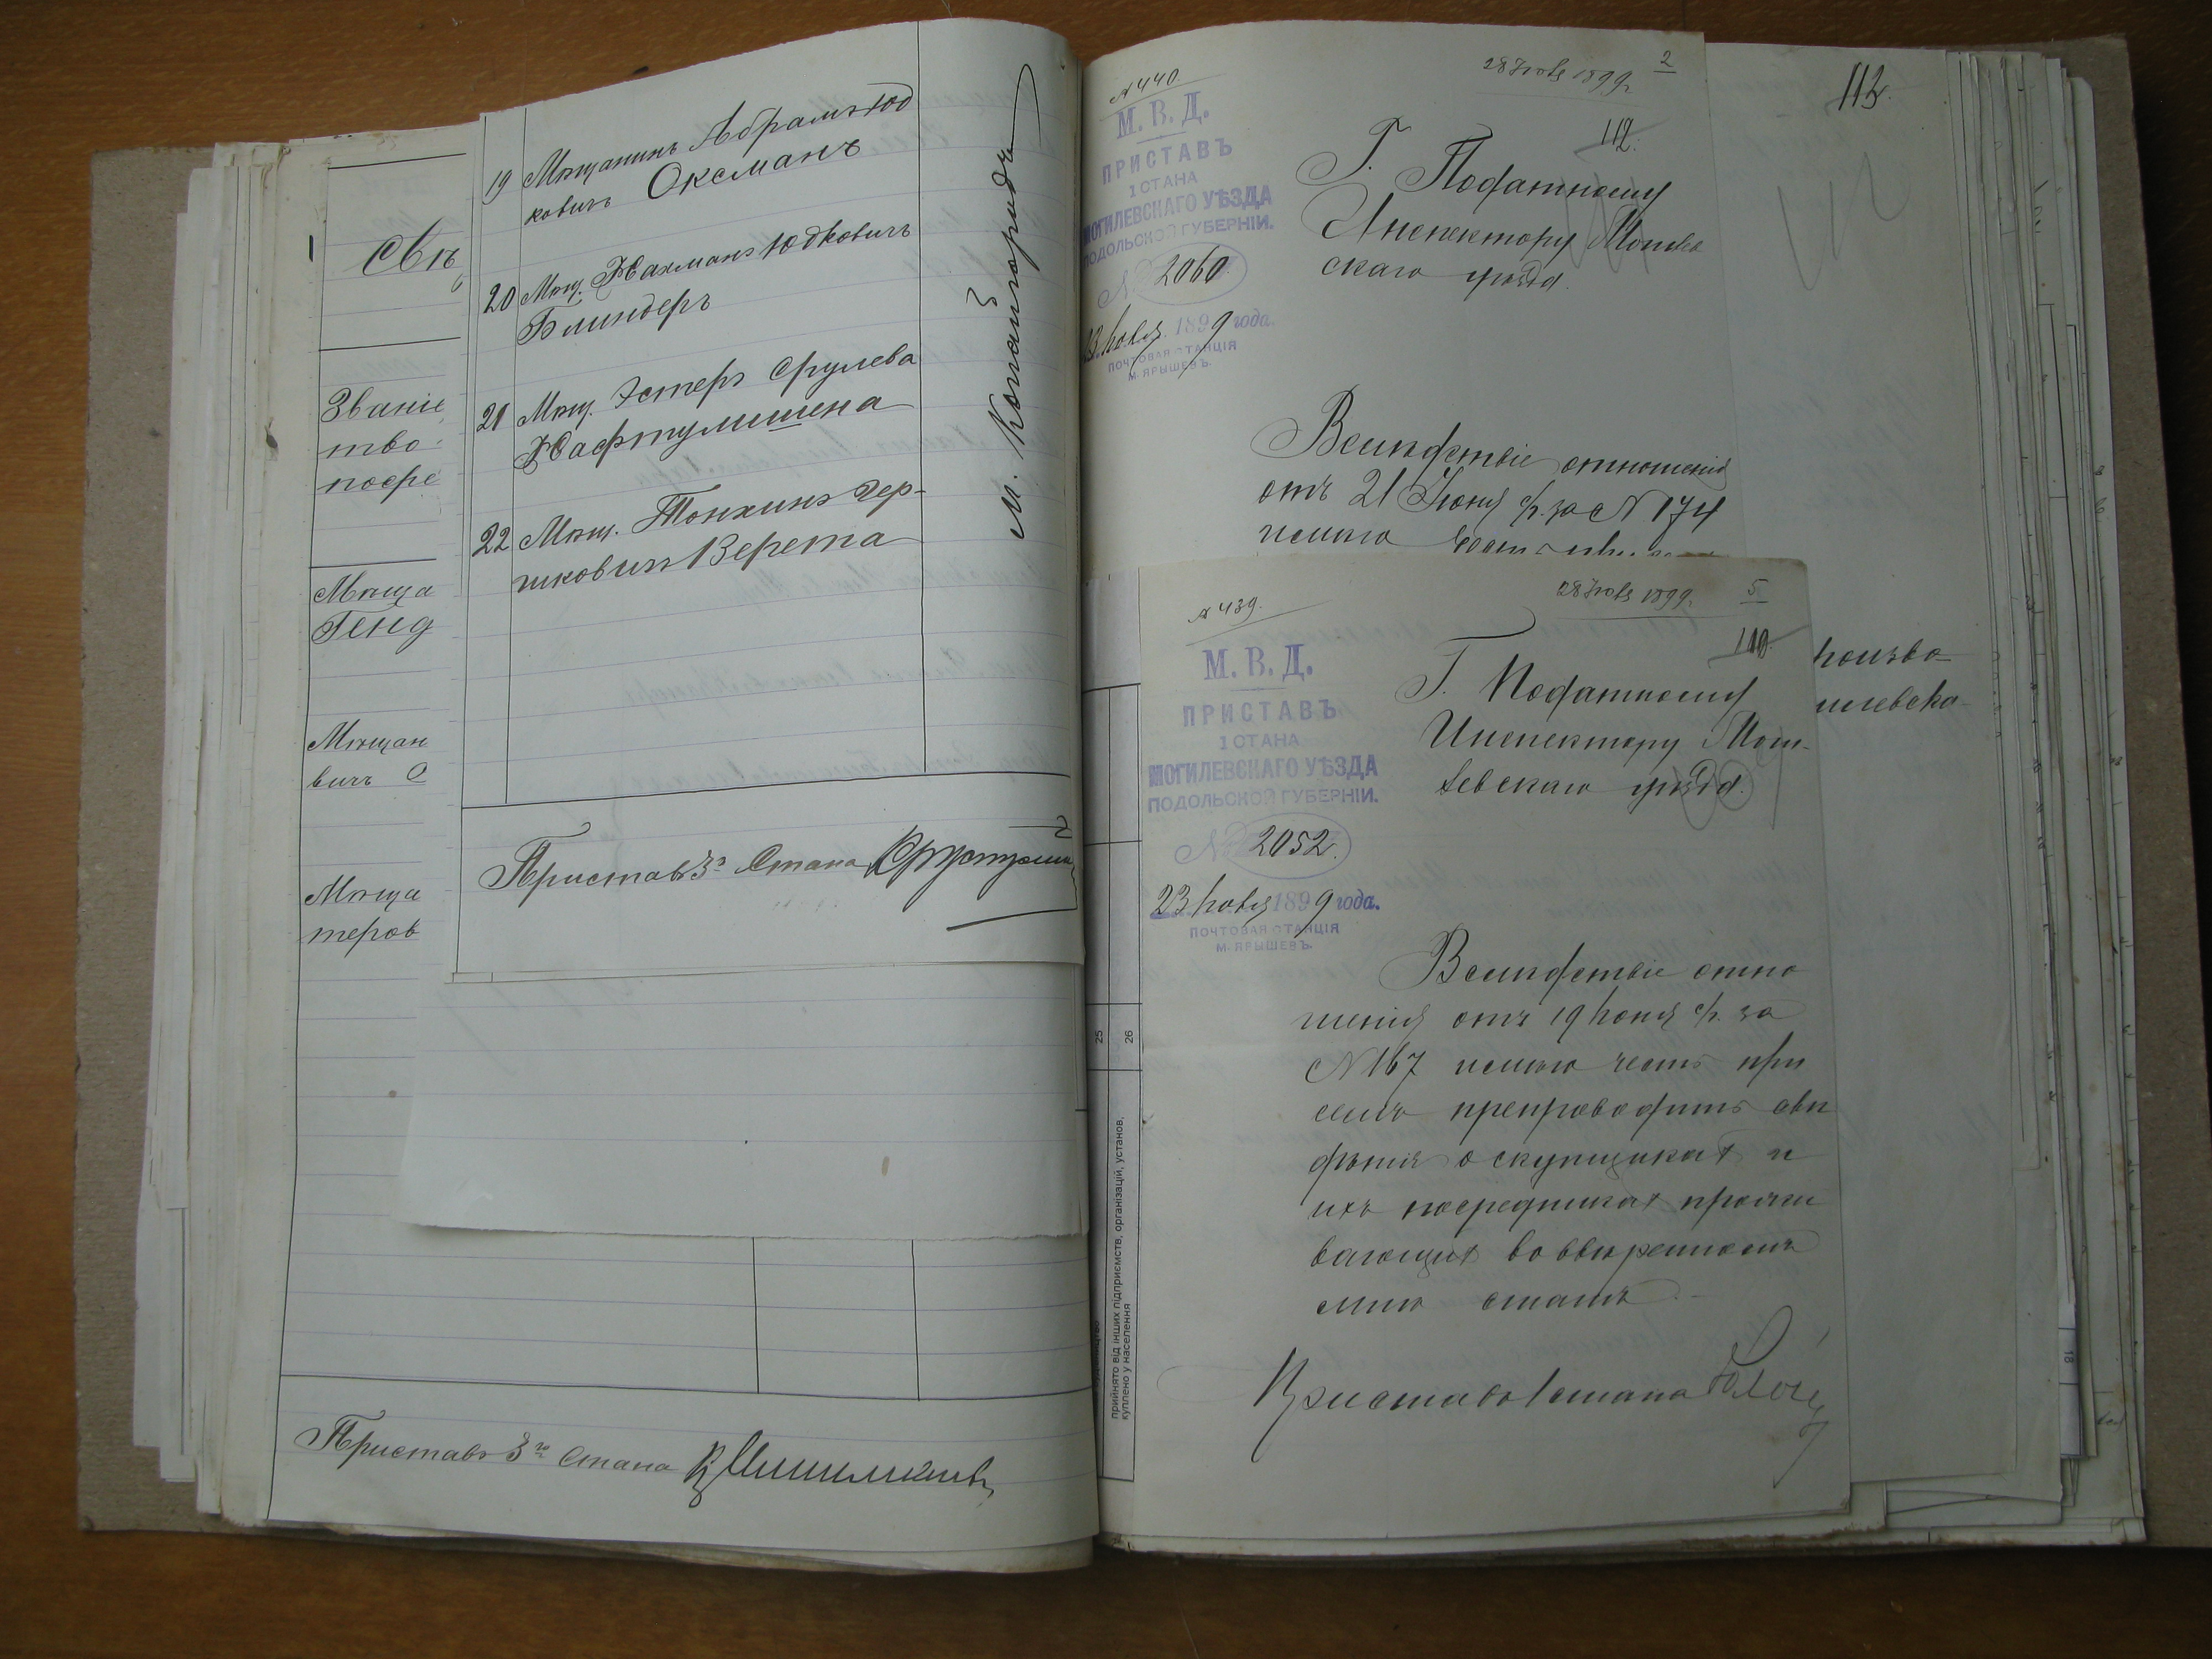 Свѣ
Званіе
тво
посре
Мѣща
Генд
Мѣщан
вичъ О
Мѣща
теров
19 Мѣщанинъ Абрамъ Юд
ковичъ Оксманъ
20 Мѣщ. Нахманъ Юдковичъ
Блиндеръ
21 Мѣщ. Эстеръ Срулева
Нафтулишена
22 Мѣщ. Тонхинъ Гер-
шковичъ Верета
м. Копайгородъ
Приставъ 3го Стана
Приставъ 3го Стана
25
26
прийнято від інших підприємств, організацій, установ,
куплено у населення
№ 440.
28 Іюля 1899 г.
2
112.
М. В. Д.
ПРИСТАВЪ
1 СТАНА
МОГИЛЕВСКАГО УѢЗДА
ПОДОЛЬСКОЙ ГУБЕРНІИ.
№ 2060.
23 Іюля 1899 года.
ПОЧТОВАЯ СТАНЦІЯ
М. ЯРЫШЕВЪ.
Г. Податному
Инспектору Могилев
скаго уѣзда.
Вслѣдствіе отношенія
отъ 21 Іюня с/г. за № 174
имѣю честь
№ 439.
28 Іюля 1899 г.
5
110
М. В. Д.
ПРИСТАВЪ
1 СТАНА
МОГИЛЕВСКАГО УѢЗДА
ПОДОЛЬСКОЙ ГУБЕРНІИ.
№ 2052.
23 Іюля 1899 года.
ПОЧТОВАЯ СТАНЦІЯ
М. ЯРЫШЕВЪ.
Г. Податному
Инспектору Моги-
левскаго уѣзда.
Вслѣдствіе отно
шенія отъ 19 Іюня с/г. за
№ 167 имѣю честь при
семъ препроводить свѣ
дѣнія о скупщикахъ и
ихъ посредникахъ прожи
вающихъ во ввѣренномъ
мнѣ станѣ.
Приставъ 1 стана
113.
18